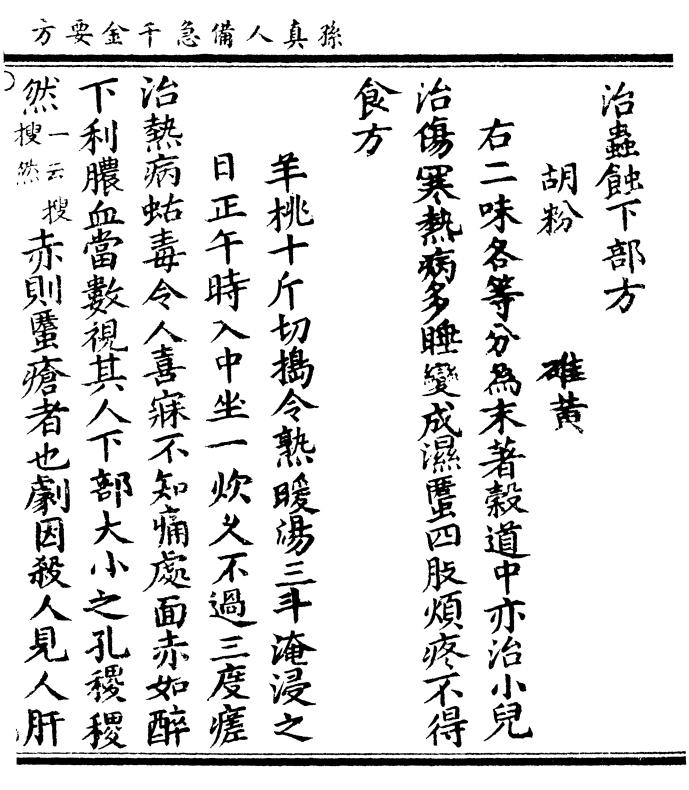 孫真人備急千金要方
治蟲蝕下部方
胡粉 雄黃
右二味各等分為末著穀道中亦治小兒
治傷寒熱病多睡變成濕䘌四肢煩疼不得
食方
羊桃十斤切搗令熟暖湯三斗淹浸之
日正午時入中坐一炊久不過三度瘥
治熱病蛄毒令人喜寐不知痛處面赤如醉
下利膿血當數視其人下部大小之孔稷稷
然一云搜搜然赤則䘌瘡者也劇因殺人見人肝